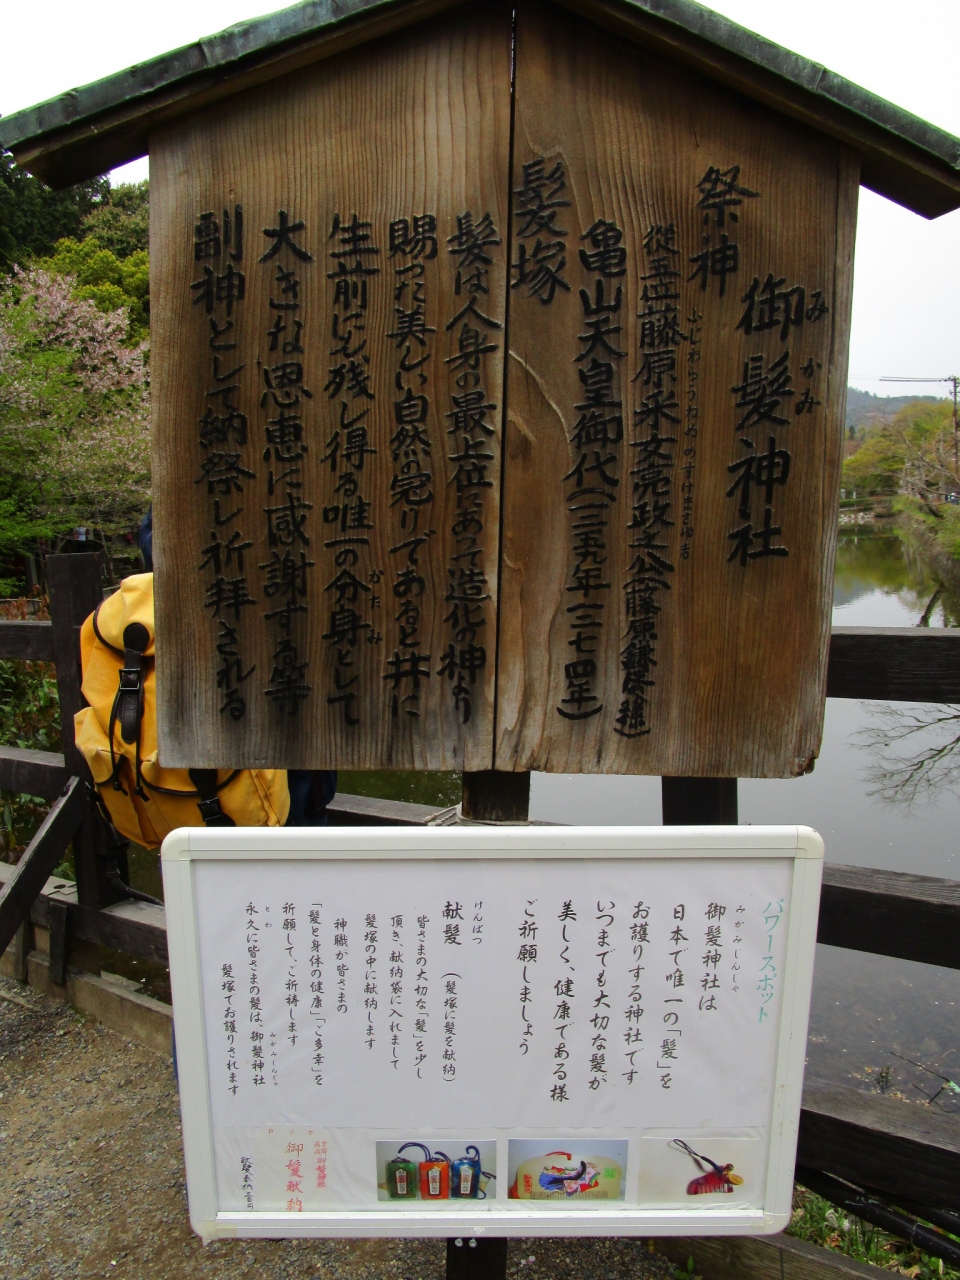 御髪神社
みかみ
祭神
従五位藤原采女亮政之公(藤原鎌足の種)
亀山天皇御代(一二五九年一二七四年)
髪塚
髪は人身の最上位にあって造化の神より
賜った美しい自然の完りであると共に
生前にも残し得る唯一の分身として
かたみ
大きな恩恵に感謝する等
副神として納祭し祈拝される
パワースポット
みかみじんじゃ
御髪神社は
日本で唯一の「髪」を
お護りする神社です
いつまでも大切な髪が
美しく、健康である様
ご祈願しましょう
けんぱつ
献髪 (髪塚に髪を献納)
皆さまの大切な「髪」を少し
頂き、献納袋に入れまして
髪塚の中に献納します
神職が皆さまの
「髪と身体の健康」「ご多幸」を
祈願して、ご祈祷します
とわ
みかみじんじゃ
永久に皆さまの髪は、御髪神社
髪塚でお護りされます
御髪神社
御髪献納